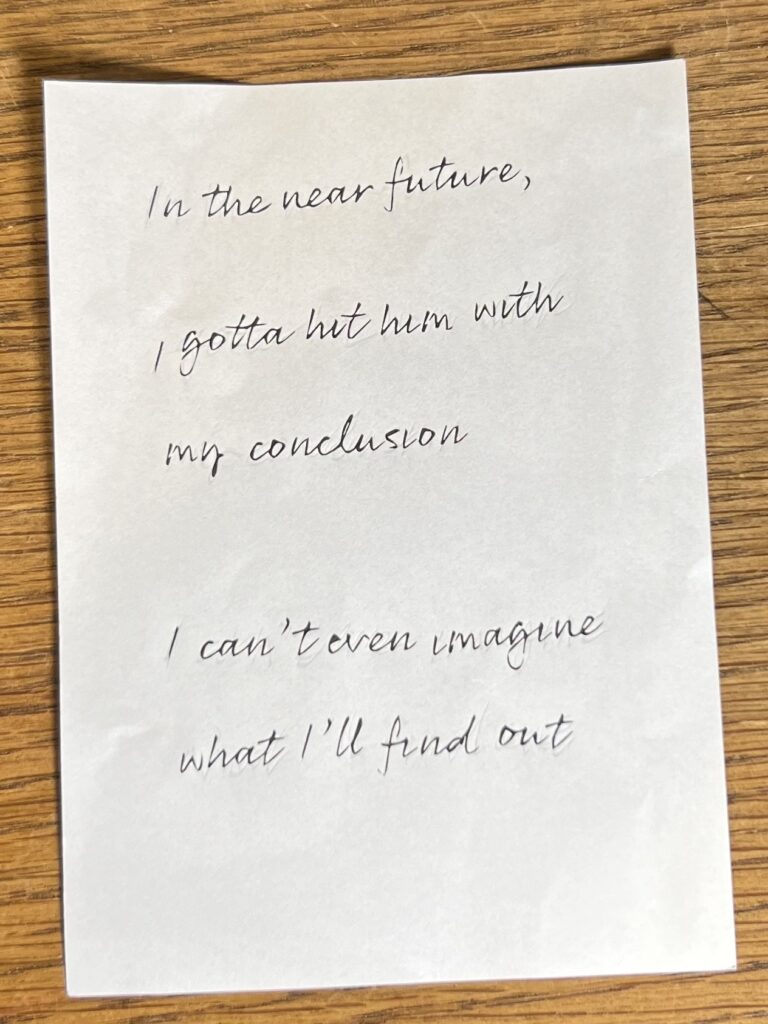 In the near future,
I gotta hit him with
my conclusion
I can't even imagine
what I'll find out